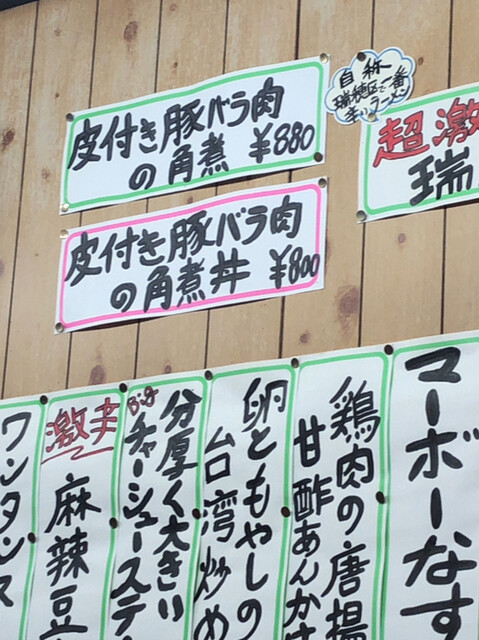 皮付き豚バラ肉
の角煮 ¥880
皮付き豚バラ肉
の角煮丼 ¥800
自称
瑞穂区で一番
辛いラーメン
超激
瑞
マーボーなす
鶏肉の唐揚
甘酢あんかけ
卵ともやしの
台湾炒め
分厚く大きい
Big チャーシューステ
激辛
麻辣豆
ワンタンス